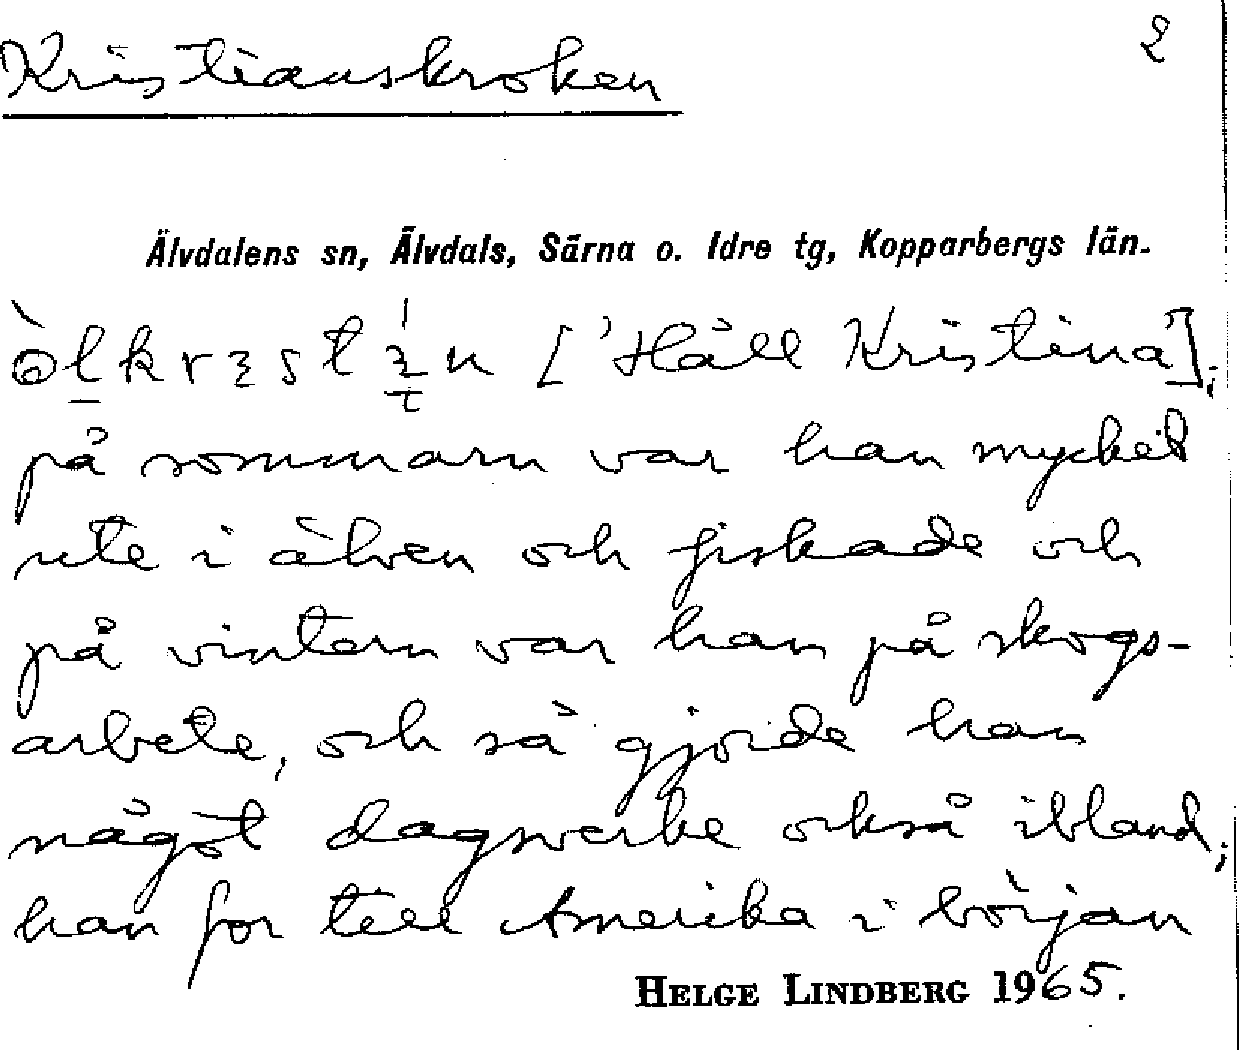 Kristianskroken 2
Älvdalens sn, Älvdals, Särna o. Idre tg, Kopparbergs län.
['Håll Kristina'];
på sommarn var han mycket
ute i älven och fiskade och
på vintern var han på skogs-
arbete, och så gjorde han
något dagsverke också ibland;
han for till Amerika i början
HELGE LINDBERG 1965.